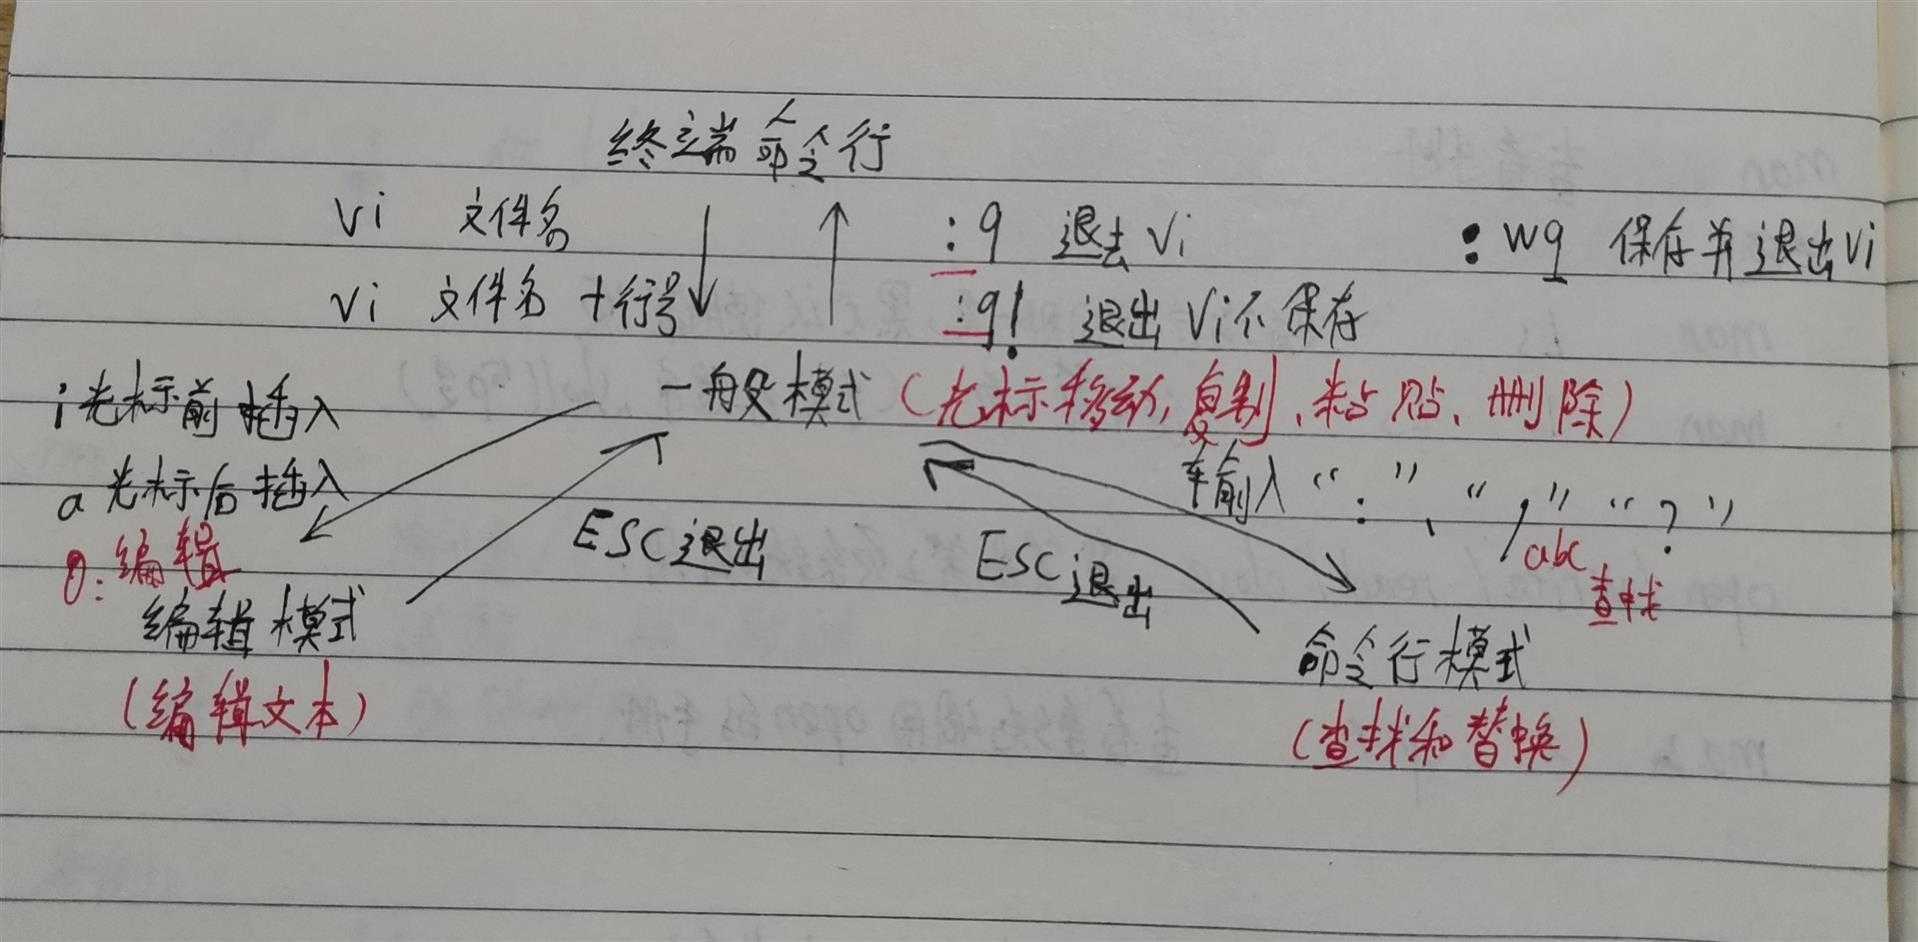 终端命令行
vi 文件名
:q 退去vi
:wq 保存并退出vi
vi 文件名 +行号
:q! 退出vi不保存
i 光标前插入
一般模式 (光标移动,复制、粘贴、删除)
a 光标后插入
输入 “:”、“/” “?”
abc
查找
ESC退出
ESC退出
o:编辑
编辑模式
(编辑文本)
命令行模式
(查找和替换)